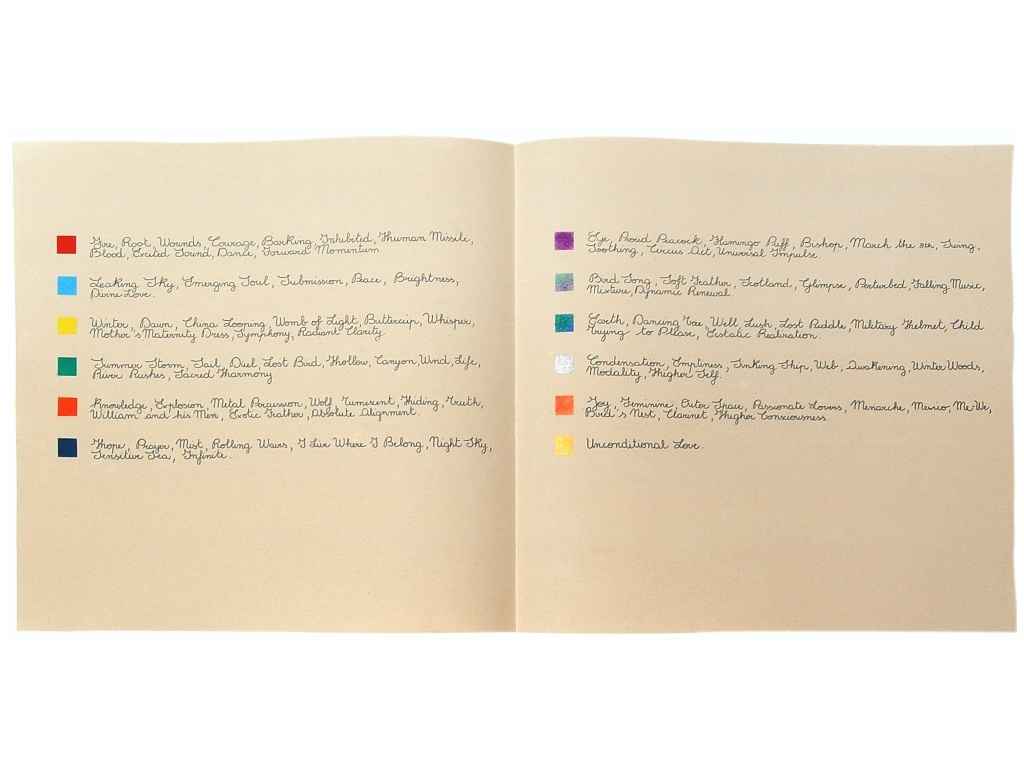 Fire, Root, Wounds, Courage, Barking, Inhibited, Human Missile,
Blood, Exited Sound, Dance, Forward Momentum
Leaking Sky, Emerging Soul, Submission, Brightness,
Divine Love.
Winter, Dawn, China Looping, Womb of Light, Buttercup, Whisper,
Mother's Maternity Dress, Symphony, Radiant Clarity
Summer Storm, Sail, Duel, Lost Bird, Hollow, Canyon, Wind, Life,
River Rushes, Sacred Harmony
Knowledge, Explosion, Metal Percussion, Wolf, Tumescent, Hiding, Truth,
William and his Men, Exotic Father, Absolute Alignment.
Hope, Prayer, Mist, Rolling Waves, I Live Where I Belong, Night Sky,
Sensitive Sea, Infinite.
Eye, Proud Peacock, Flamingo Puff, Bishop, March the 3rd, Swing,
Soothing, Circus Act, Universal Impulse
Bird Song, Soft Feather, Scotland, Glimpse, Perturbed, Falling Music,
Mixture, Dynamic Renewal
Earth, Dancing Tree, Well, Lush, Lost Puddle, Military Helmet, Child
Trying to Please, Ecstatic Realization.
Condensation, Emptiness, Sinking Ship, Web, Awakening, Winter Woods,
Modality, Higher Self.
Joy, Feminine, Outer Space, Passionate Lovers, Menarche, Mexico, Me-We,
Bird's Nest, Clarinet, Higher Consciousness
Unconditional Love